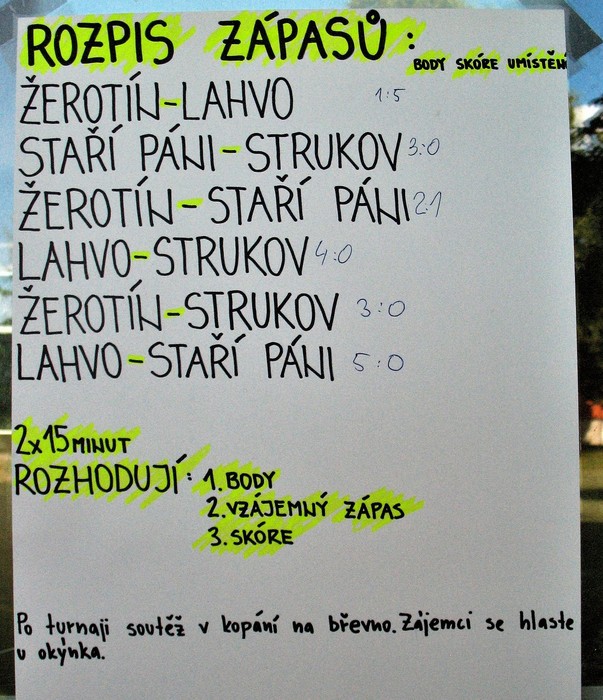 ROZPIS ZÁPASŮ:
BODY SKÓRE UMÍSTĚNÍ
ŽEROTÍN-LAHVO 1:5
STAŘÍ PÁNI-STRUKOV 3:0
ŽEROTÍN-STAŘÍ PÁNI 2:1
LAHVO-STRUKOV 4:0
ŽEROTÍN-STRUKOV 3:0
LAHVO-STAŘÍ PÁNI 5:0
2x15 MINUT
ROZHODUJÍ: 1. BODY
2. VZÁJEMNÝ ZÁPAS
3. SKÓRE
Po turnaji soutěž v kopání na břevno. Zájemci se hlaste
u okýnka.